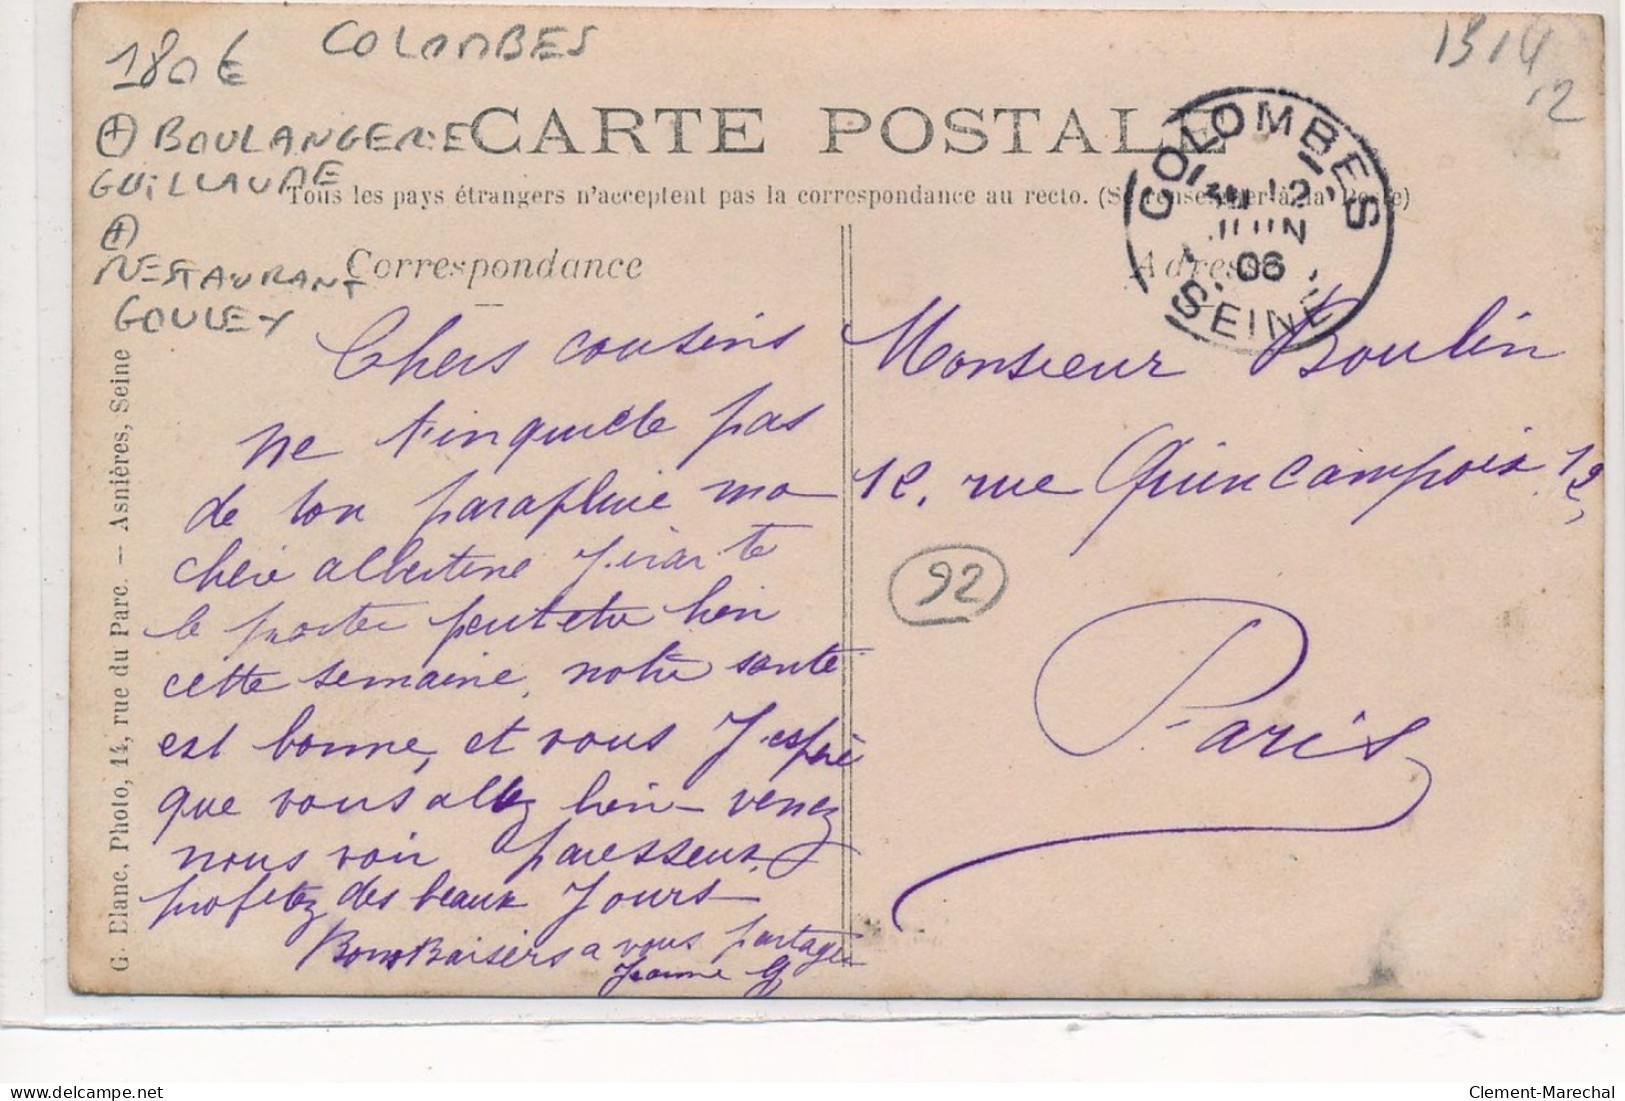 180€ COLOMBES
1314
12
+ BOULANGERIE
GUILLAUME
+
RESTAURANT
GOULEY
CARTE POSTALE
Tous les pays étrangers n'acceptent pas la correspondance au recto. (Se renseigner à la Poste)
Correspondance
Adresse
COLOMBES
12
JUIN
06
SEINE
Chers cousins
ne t'inquiete pas
de ton parapluie ma
chère albertine J'irai te
le porter peutetre bien
cette semaine, notre santé
est bonne, et vous J'espère
que vous allez bien venez
nous voir paresseux,
profitez des beaux Jours
Bons Baisers a vous partager
Jeanne G
Monsieur Boulin
12, rue Quincampoix 12,
Paris
92
G. Elanc, Photo, 14, rue du Parc. — Asnières, Seine
Clement-Marechal
delcampe.net